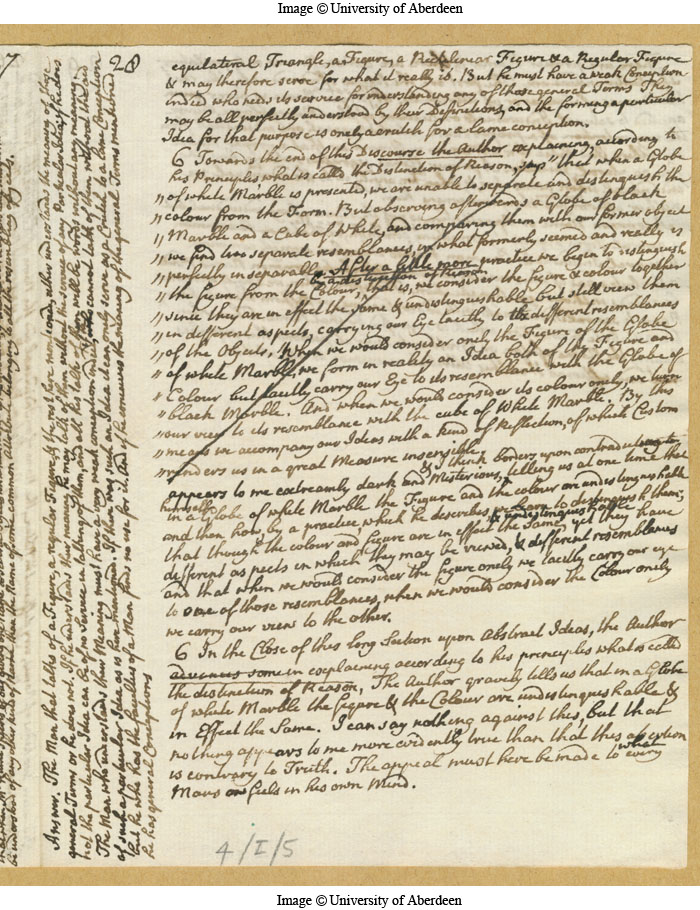 Image © University of Aberdeen
7
28
equilateral Triangle, a Figure, a Rectilinear Figure & a Regular Figure
& may therefore serve for what it really is. But he must have a weak Conception
indeed who needs its service for understanding any of those general Terms They
may be all perfectly understood by their Definitions, and the forming a particular
Idea for that purpose is onely a crutch for a lame conception.
6 Towards the end of this Discourse the Author explaining, according to
his Principles what is called the Distinction of Reason, says "that when a Globe
" of white Marble is presented, we are unable to separate and distinguish the
colour from the Form. But observing afterwards a Globe of black
" Marble and a Cube of White, and comparing them with our former object
" we find two separate resemblances, in what formerly seemed and really is
" perfectly inseparable. After a little more practice we begin to distinguish
by a distinction of Reason
" the figure from the Colour, that is, we consider the figure & colour together
" since they are in effect the same & undistinguishable but still view them
" in different aspects, carrying our Eye tacitly to the different resemblances
" of the Objects, When we would consider onely the Figure of the Globe
" of white Marble, we form in reality an Idea both of the Figure and
" Colour but tacitly carry our Eye to its resemblance with the Globe of
" black Marble. And when we would consider its colour onely, we turn
" our view to its resemblance with the cube of White Marble. By this
" means we accompany our Ideas with a kind of Reflection, of which Custom
" renders us in a great Measure insensible
& I think borders upon contradicting
appears to me extreamly dark and Mysterious, telling us at one time that
himself
in a Globe of white Marble the Figure and the colour are undistinguishable
and then how, by a practice, which he describes, we learn to distinguish them;
& undistinguishable
that though the colour and figure are in effect the Same, yet they have
different aspects in which they may be viewed, & different resemblances
and that when we would consider the figure onely we tacitly carry our eye
to one of those resemblances, when we would consider the Colour onely
we carry our view to the other.
6 In the Close of this long Section upon Abstract Ideas, the Author
advances some in explaining according to his principles what is called
the distinction of Reason, The Author gravely tells us that in a Globe
of white Marble the figure & the Colour are undistinguishable &
in Effect the Same. I can say nothing against this, but that
nothing appears to me more evidently true than that this assertion
is contrary to Truth. The appeal must here be made to what every
Man feels in his own Mind.
4/I/5
Answer. The Man that talks of a Figure, a regular Figure, & the rest here mentioned, either understands the meaning of those
general Terms or he does not. If he understands their meaning he may talk of them without the service of any Particular Idea; if he does
not the particular Idea can be of no Service in talking of them, and all his talk of them will be words without any meaning.
The Man who understands their Meaning must have a very weak conception indeed, if he cannot talk of them without the aid
of such a particular Idea as is here mentioned. If there was such an Idea it can only serve as a Crutch to a lame Conception
but he who has the faculties of a Man finds no use for it. And if he conceives the meaning of the general Terms mentioned
he has general Conceptions
be understood of any other kind of being than the Name of some common attribute belonging to all the resembling objects.
Image © University of Aberdeen